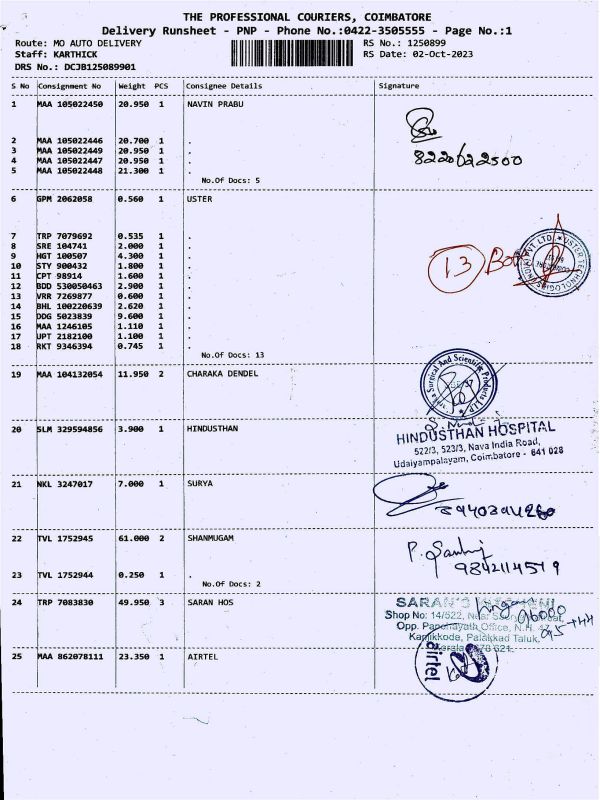 THE PROFESSIONAL COURIERS, COIMBATORE
Delivery Runsheet - PNP - Phone No.:0422-3505555 - Page No.:1
Route: MO AUTO DELIVERY RS No.: 1250899
Staff: KARTHICK RS Date: 02-Oct-2023
DRS No.: DCJB125089901
S No Consignment No Weight PCS Consignee Details Signature
1 MAA 105022450 20.950 1 NAVIN PRABU
2 MAA 105022446 20.700 1 .
3 MAA 105022449 20.950 1 .
4 MAA 105022447 20.950 1 .
5 MAA 105022448 21.300 1 .
No.Of Docs: 5
6 GPM 2062058 0.560 1 USTER
7 TRP 7079692 0.535 1 .
8 SRE 104741 2.000 1 .
9 HGT 100507 4.300 1 .
10 STY 900432 1.800 1 .
11 CPT 98914 1.600 1 .
12 BDD 530050463 2.900 1 .
13 VRR 7269877 0.600 1 .
14 BHL 100220639 2.620 1 .
15 DDG 5023839 9.600 1 .
16 MAA 1246105 1.110 1 .
17 UPT 2182100 1.100 1 .
18 RKT 9346394 0.745 1 .
No.Of Docs: 13
13 Box
19 MAA 104132054 11.950 2 CHARAKA DENDEL
20 SLM 329594856 3.900 1 HINDUSTHAN
HINDUSTHAN HOSPITAL
522/3, 523/3, Nava India Road,
Udaiyampalayam, Coimbatore - 641 028
21 NKL 3247017 7.000 1 SURYA
22 TVL 1752945 61.000 2 SHANMUGAM
9842114579
23 TVL 1752944 0.250 1 .
No.Of Docs: 2
24 TRP 7083830 49.950 3 SARAN HOS
SARAN'S
Shop No: 14/522,
Opp. Panchayath Office, N.H
Kanjikkode, Palakkad Taluk,
25 MAA 862078111 23.350 1 AIRTEL
airtel